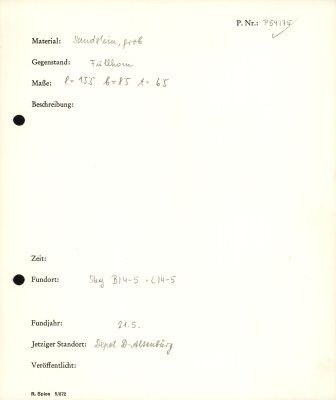 P. Nr.: P59175
Material: Sandstein, grob
Gegenstand: Füllhorn
Maße: l= 155 b=85 t= 65
Beschreibung:
Zeit:
Fundort: B14-5 - L14-5
Fundjahr: 21.5.
Jetziger Standort: Depot D-Altenburg
Veröffentlicht:
R. Spies 5/872